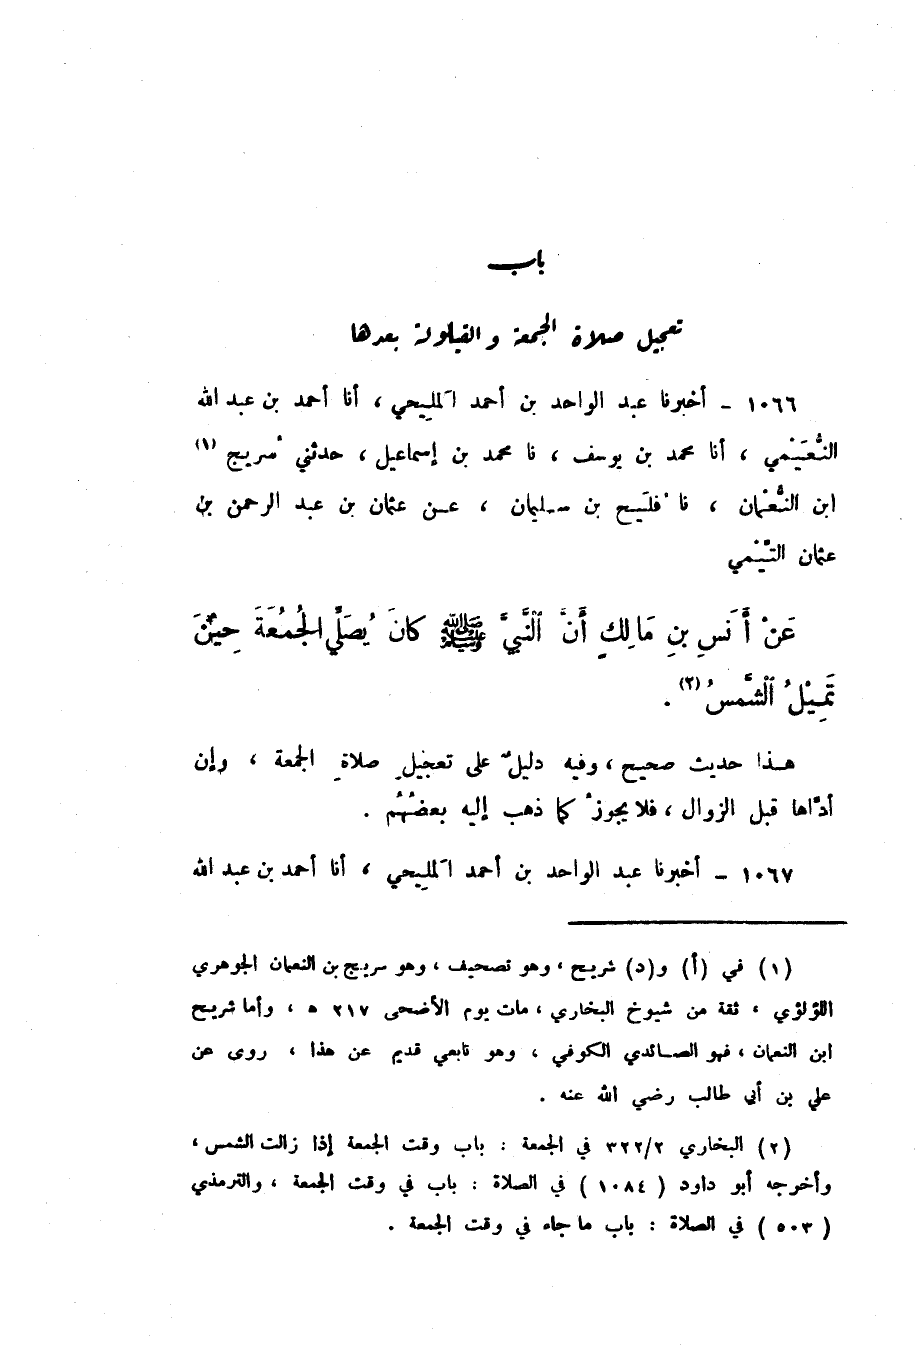 باب
تعجيل صلاة الجمعة والقيلولة بعدها
١٠٦٦ – أخبرنا عبد الواحد بن أحمد المَليحي ، أنا أحمد بن عبد الله
النُّعَيْمي ، أنا محمد بن يوسف ، نا محمد بن إسماعيل ، حدثني سُريج (١)
ابن النُّعْمان ، نا فُلَيح بن سليمان ، عن عثمان بن عبد الرحمن بن
عثمان التَّيْمي
عَنْ أَنَسِ بنِ مَالِكٍ أَنَّ ٱلنَّبيَّ ﷺ كَانَ يُصَلِّي الجُمُعَةَ حِيْنَ
تَمِيْلُ ٱلشَّمسُ (٢) .
هذا حديث صحيح ، وفيه دليلٌ على تعجيلِ صلاةِ الجمعة ، وإن
أدَّاها قبل الزوال ، فلا يجوزُ كما ذهب إليه بعضُهُم .
١٠٦٧ – أخبرنا عبد الواحد بن أحمد المَليحي ، أنا أحمد بن عبد الله
(١) في (أ) و(د) شريح ، وهو تصحيف ، وهو سريج بن النعمان الجوهري
اللؤلؤي ، ثقة من شيوخ البخاري ، مات يوم الأضحى ٢١٧ ه ، وأما شريح
ابن النعمان ، فهو الصائدي الكوفي ، وهو تابعي قديم عن هذا ، روى عن
علي بن أبي طالب رضي الله عنه .
(٢) البخاري ٣٢٢/٢ في الجمعة : باب وقت الجمعة إذا زالت الشمس ،
وأخرجه أبو داود ( ١٠٨٤ ) في الصلاة : باب في وقت الجمعة ، والترمذي
( ٥٠٣ ) في الصلاة : باب ما جاء في وقت الجمعة .